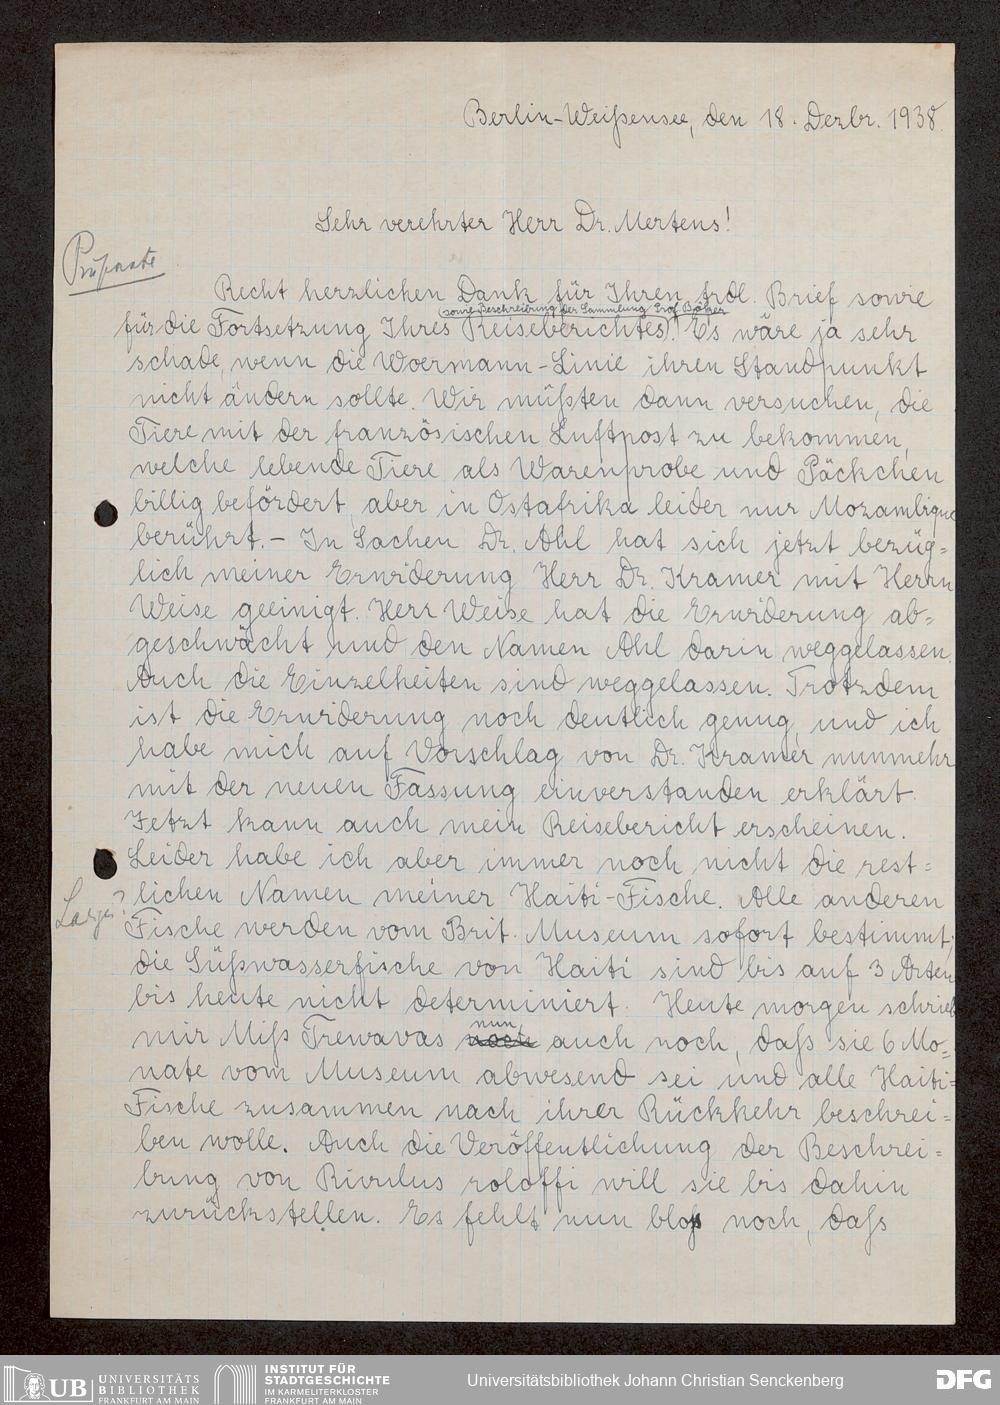 Berlin-Weißensee, den 18. Dezbr. 1938.
Sehr verehrter Herr Dr. Mertens!
Recht herzlichen Dank für Ihren frdl. Brief sowie
(sowie Beschreibung der Sammlung Prof. Böker
für die Fortsetzung Ihres Reiseberichtes)! Es wäre ja sehr
schade, wenn die Woermann-Linie ihren Standpunkt
nicht ändern sollte. Wir müßten dann versuchen, die
Tiere mit der französischen Luftpost zu bekommen,
welche lebende Tiere als Warenprobe und Päckchen
billig befördert, aber in Ostafrika leider nur Mozambique
berührt. – In Sachen Dr. Ahl hat sich jetzt bezüg=
lich meiner Erwiderung Herr Dr. Kramer mit Herrn
Weise geeinigt. Herr Weise hat die Erwiderung ab=
geschwächt und den Namen Ahl darin weggelassen.
Auch die Einzelheiten sind weggelassen. Trotzdem
ist die Erwiderung noch deutlich genug, und ich
habe mich auf Vorschlag von Dr. Kramer nunmehr
mit der neuen Fassung einverstanden erklärt.
Jetzt kann auch mein Reisebericht erscheinen.
Leider habe ich aber immer noch nicht die rest=
lichen Namen meiner Haiti-Fische. Alle anderen
Fische werden vom Brit. Museum sofort bestimmt;
die Süßwasserfische von Haiti sind bis auf 3 Arten
bis heute nicht determiniert. Heute morgen schrieb
mir Miß Trewavas noch nun auch noch, daß sie 6 Mo=
nate vom Museum abwesend sei und alle Haiti=
Fische zusammen nach ihrer Rückkehr beschrei=
ben wolle. Auch die Veröffentlichung der Beschrei=
bung von Rivulus roloffi will sie bis dahin
zurückstellen. Es fehlt nun bloß noch, daß
UB
UNIVERSITÄTS
BIBLIOTHEK
FRANKFURT AM MAIN
INSTITUT FÜR
STADTGESCHICHTE
IM KARMELITERKLOSTER
FRANKFURT AM MAIN
Universitätsbibliothek Johann Christian Senckenberg
DFG